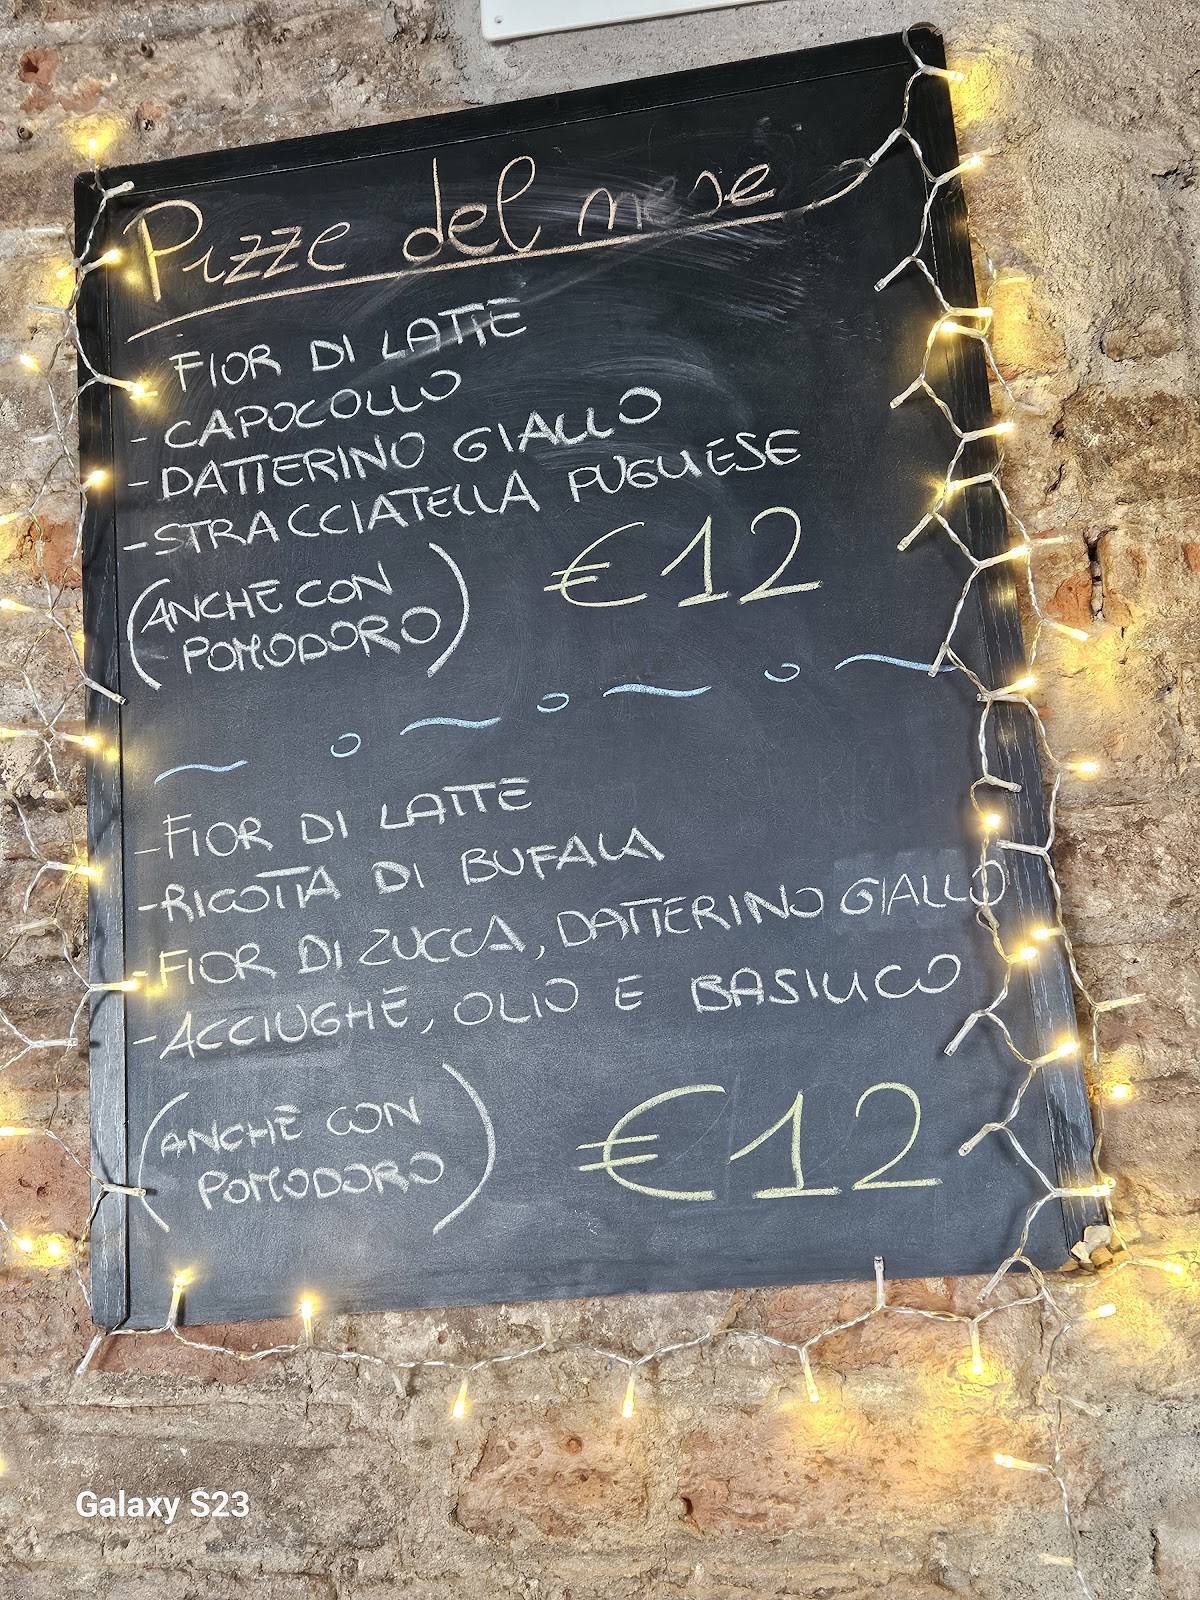 Pizze del mese
FIOR DI LATTE
- CAPOCOLLO
- DATTERINO GIALLO
- STRACCIATELLA PUGLIESE
(ANCHE CON
POMODORO)
€12
- FIOR DI LATTE
- RICOTTA DI BUFALA
- FIOR DI ZUCCA, DATTERINO GIALLO
- ACCIUGHE, OLIO E BASILICO
(ANCHE CON
POMODORO)
€12
Galaxy S23